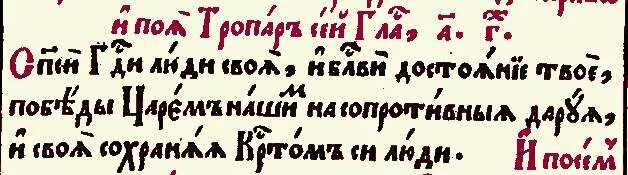 и҆ поѧ҆т̾ Тропа́ръ се́й Гла́с, а҃. г҃.
Сп҃си́ Гд҇и лю́ди своѧ҆, и҆ бл҃ви́ достоѧ́нїе твое҆,
побѣ́ды Царе́мъ на́шим на сопроти́вныѧ да́рꙋѧ,
и҆ своѧ҆ сохранѧ́ѧ Кр҇то́мъ си лю́ди. И҆ посе́м